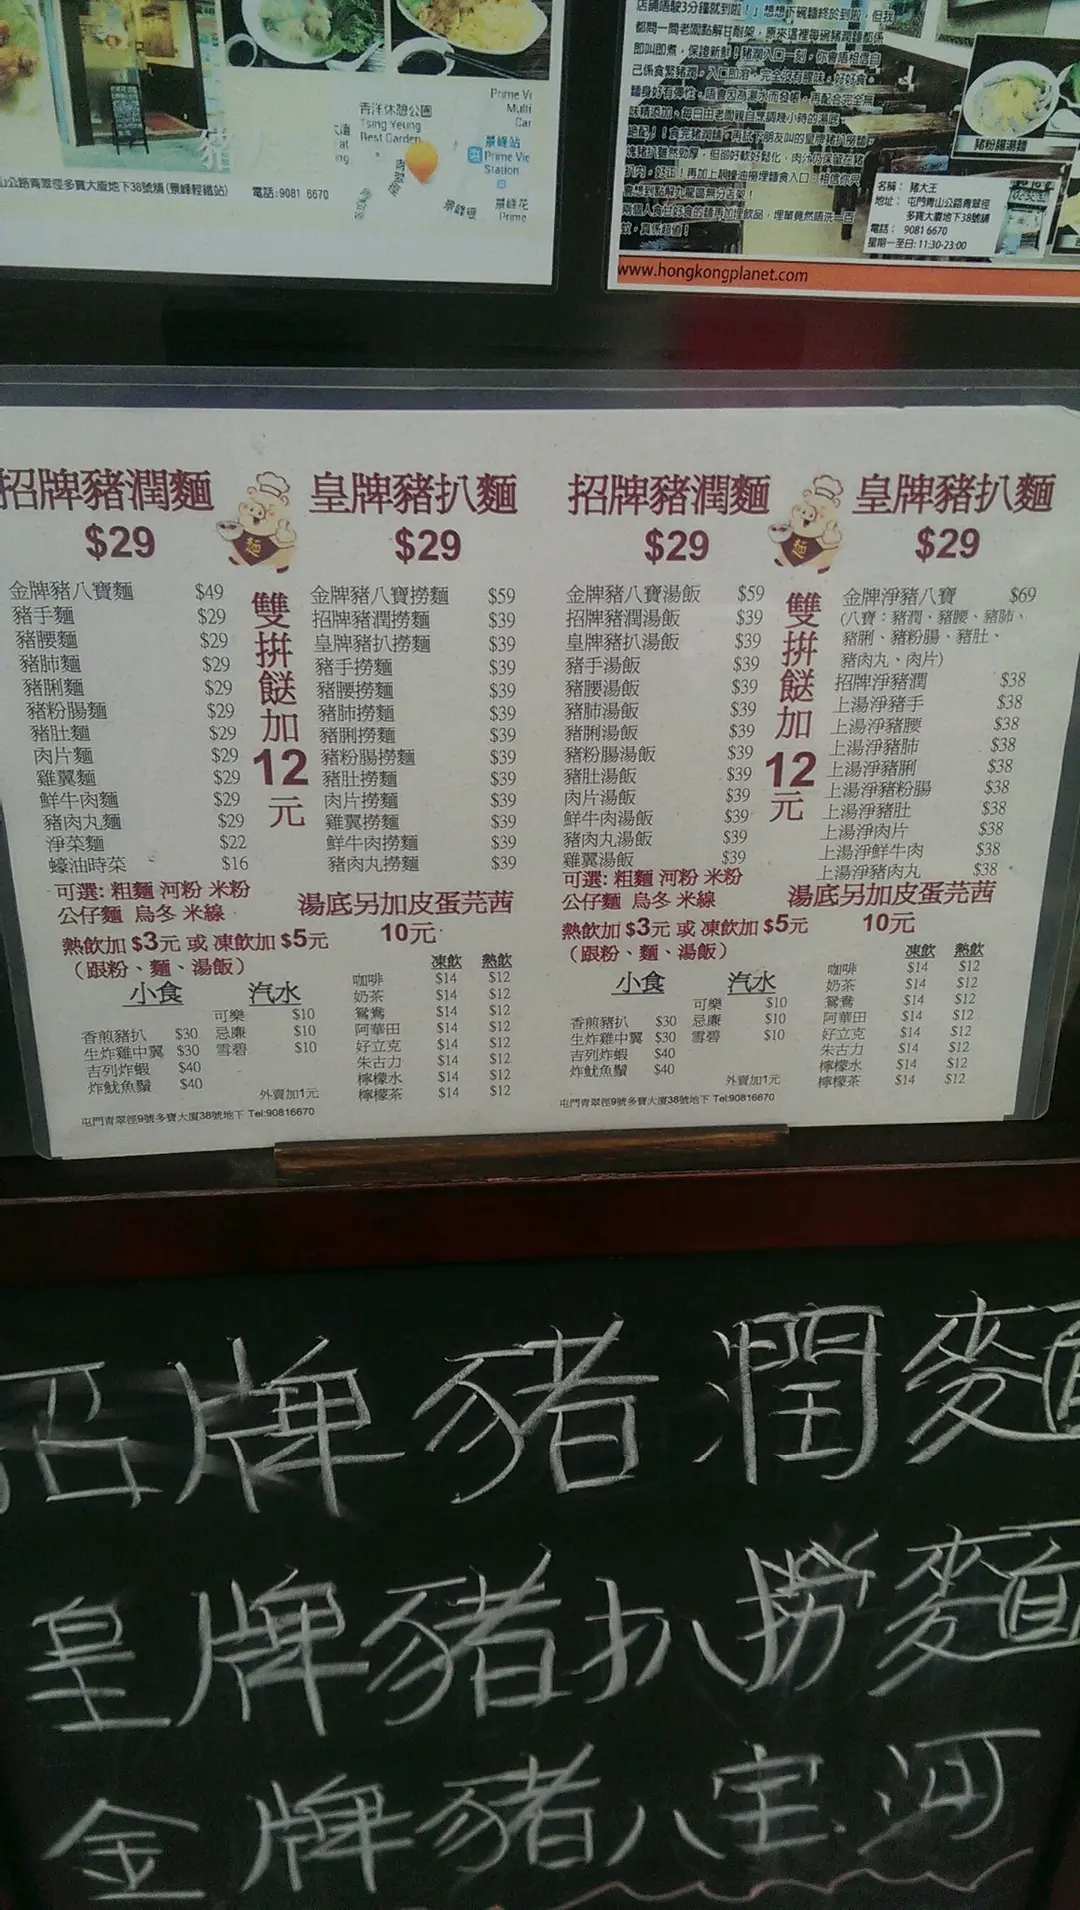 青洋休憩公園
Tsing Yeung
Rest Garden
Prime Vi
景峰站
Prime Vie
Station
景峰徑
景峰花
Prime
山公路青翠徑多寶大廈地下38號舖(景峰輕鐵站) 電話:9081 6670
豬粉腸湯麵
名稱: 豬大王
地址: 屯門青山公路青翠徑
多寶大廈地下38號舖
電話: 9081 6670
星期一至日: 11:30-23:00
www.hongkongplanet.com
招牌豬潤麵
$29
金牌豬八寶麵 $49
豬手麵 $29
豬腰麵 $29
豬肺麵 $29
豬脷麵 $29
豬粉腸麵 $29
豬肚麵 $29
肉片麵 $29
雞翼麵 $29
鮮牛肉麵 $29
豬肉丸麵 $29
淨菜麵 $22
蠔油時菜 $16
雙拼餸加12元
皇牌豬扒麵
$29
金牌豬八寶撈麵 $59
招牌豬潤撈麵 $39
皇牌豬扒撈麵 $39
豬手撈麵 $39
豬腰撈麵 $39
豬肺撈麵 $39
豬脷撈麵 $39
豬粉腸撈麵 $39
豬肚撈麵 $39
肉片撈麵 $39
雞翼撈麵 $39
鮮牛肉撈麵 $39
豬肉丸撈麵 $39
可選: 粗麵 河粉 米粉
公仔麵 烏冬 米線
熱飲加 $3元 或 凍飲加 $5元
(跟粉、麵、湯飯)
湯底另加皮蛋芫茜
10元
小食
香煎豬扒 $30
生炸雞中翼 $30
吉列炸蝦 $40
炸魷魚鬚 $40
汽水
可樂 $10
忌廉 $10
雪碧 $10
外賣加1元
凍飲 熱飲
咖啡 $14 $12
奶茶 $14 $12
鴛鴦 $14 $12
阿華田 $14 $12
好立克 $14 $12
朱古力 $14 $12
檸檬水 $14 $12
檸檬茶 $14 $12
屯門青翠徑9號多寶大廈38號地下 Tel:90816670
招牌豬潤麵
$29
金牌豬八寶湯飯 $59
招牌豬潤湯飯 $39
皇牌豬扒湯飯 $39
豬手湯飯 $39
豬腰湯飯 $39
豬肺湯飯 $39
豬脷湯飯 $39
豬粉腸湯飯 $39
豬肚湯飯 $39
肉片湯飯 $39
鮮牛肉湯飯 $39
豬肉丸湯飯 $39
雞翼湯飯 $39
雙拼餸加12元
皇牌豬扒麵
$29
金牌淨豬八寶 $69
(八寶:豬潤、豬腰、豬肺、
豬脷、豬粉腸、豬肚、
豬肉丸、肉片)
招牌淨豬潤 $38
上湯淨豬手 $38
上湯淨豬腰 $38
上湯淨豬肺 $38
上湯淨豬脷 $38
上湯淨豬粉腸 $38
上湯淨豬肚 $38
上湯淨肉片 $38
上湯淨鮮牛肉 $38
上湯淨豬肉丸 $38
可選: 粗麵 河粉 米粉
公仔麵 烏冬 米線
熱飲加 $3元 或 凍飲加 $5元
(跟粉、麵、湯飯)
湯底另加皮蛋芫茜
10元
小食
香煎豬扒 $30
生炸雞中翼 $30
吉列炸蝦 $40
炸魷魚鬚 $40
汽水
可樂 $10
忌廉 $10
雪碧 $10
外賣加1元
凍飲 熱飲
咖啡 $14 $12
奶茶 $14 $12
鴛鴦 $14 $12
阿華田 $14 $12
好立克 $14 $12
朱古力 $14 $12
檸檬水 $14 $12
檸檬茶 $14 $12
屯門青翠徑9號多寶大廈38號地下 Tel:90816670
招牌豬潤麵
皇牌豬扒撈麵
金牌豬八宝河